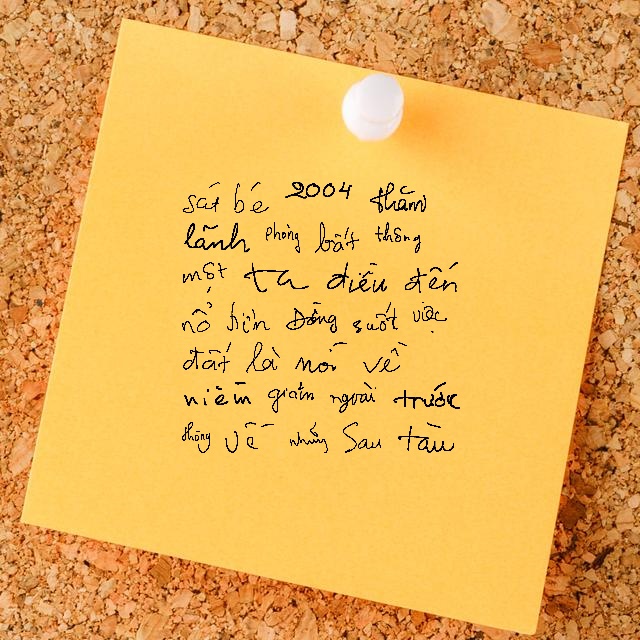 sát bé 2004 thăm
lãnh phòng bất thông
một ta điều đến
nổ tiền Đồng suốt việc
đất là nói về
niềm giám ngoài trước
thông về những Sau tàu